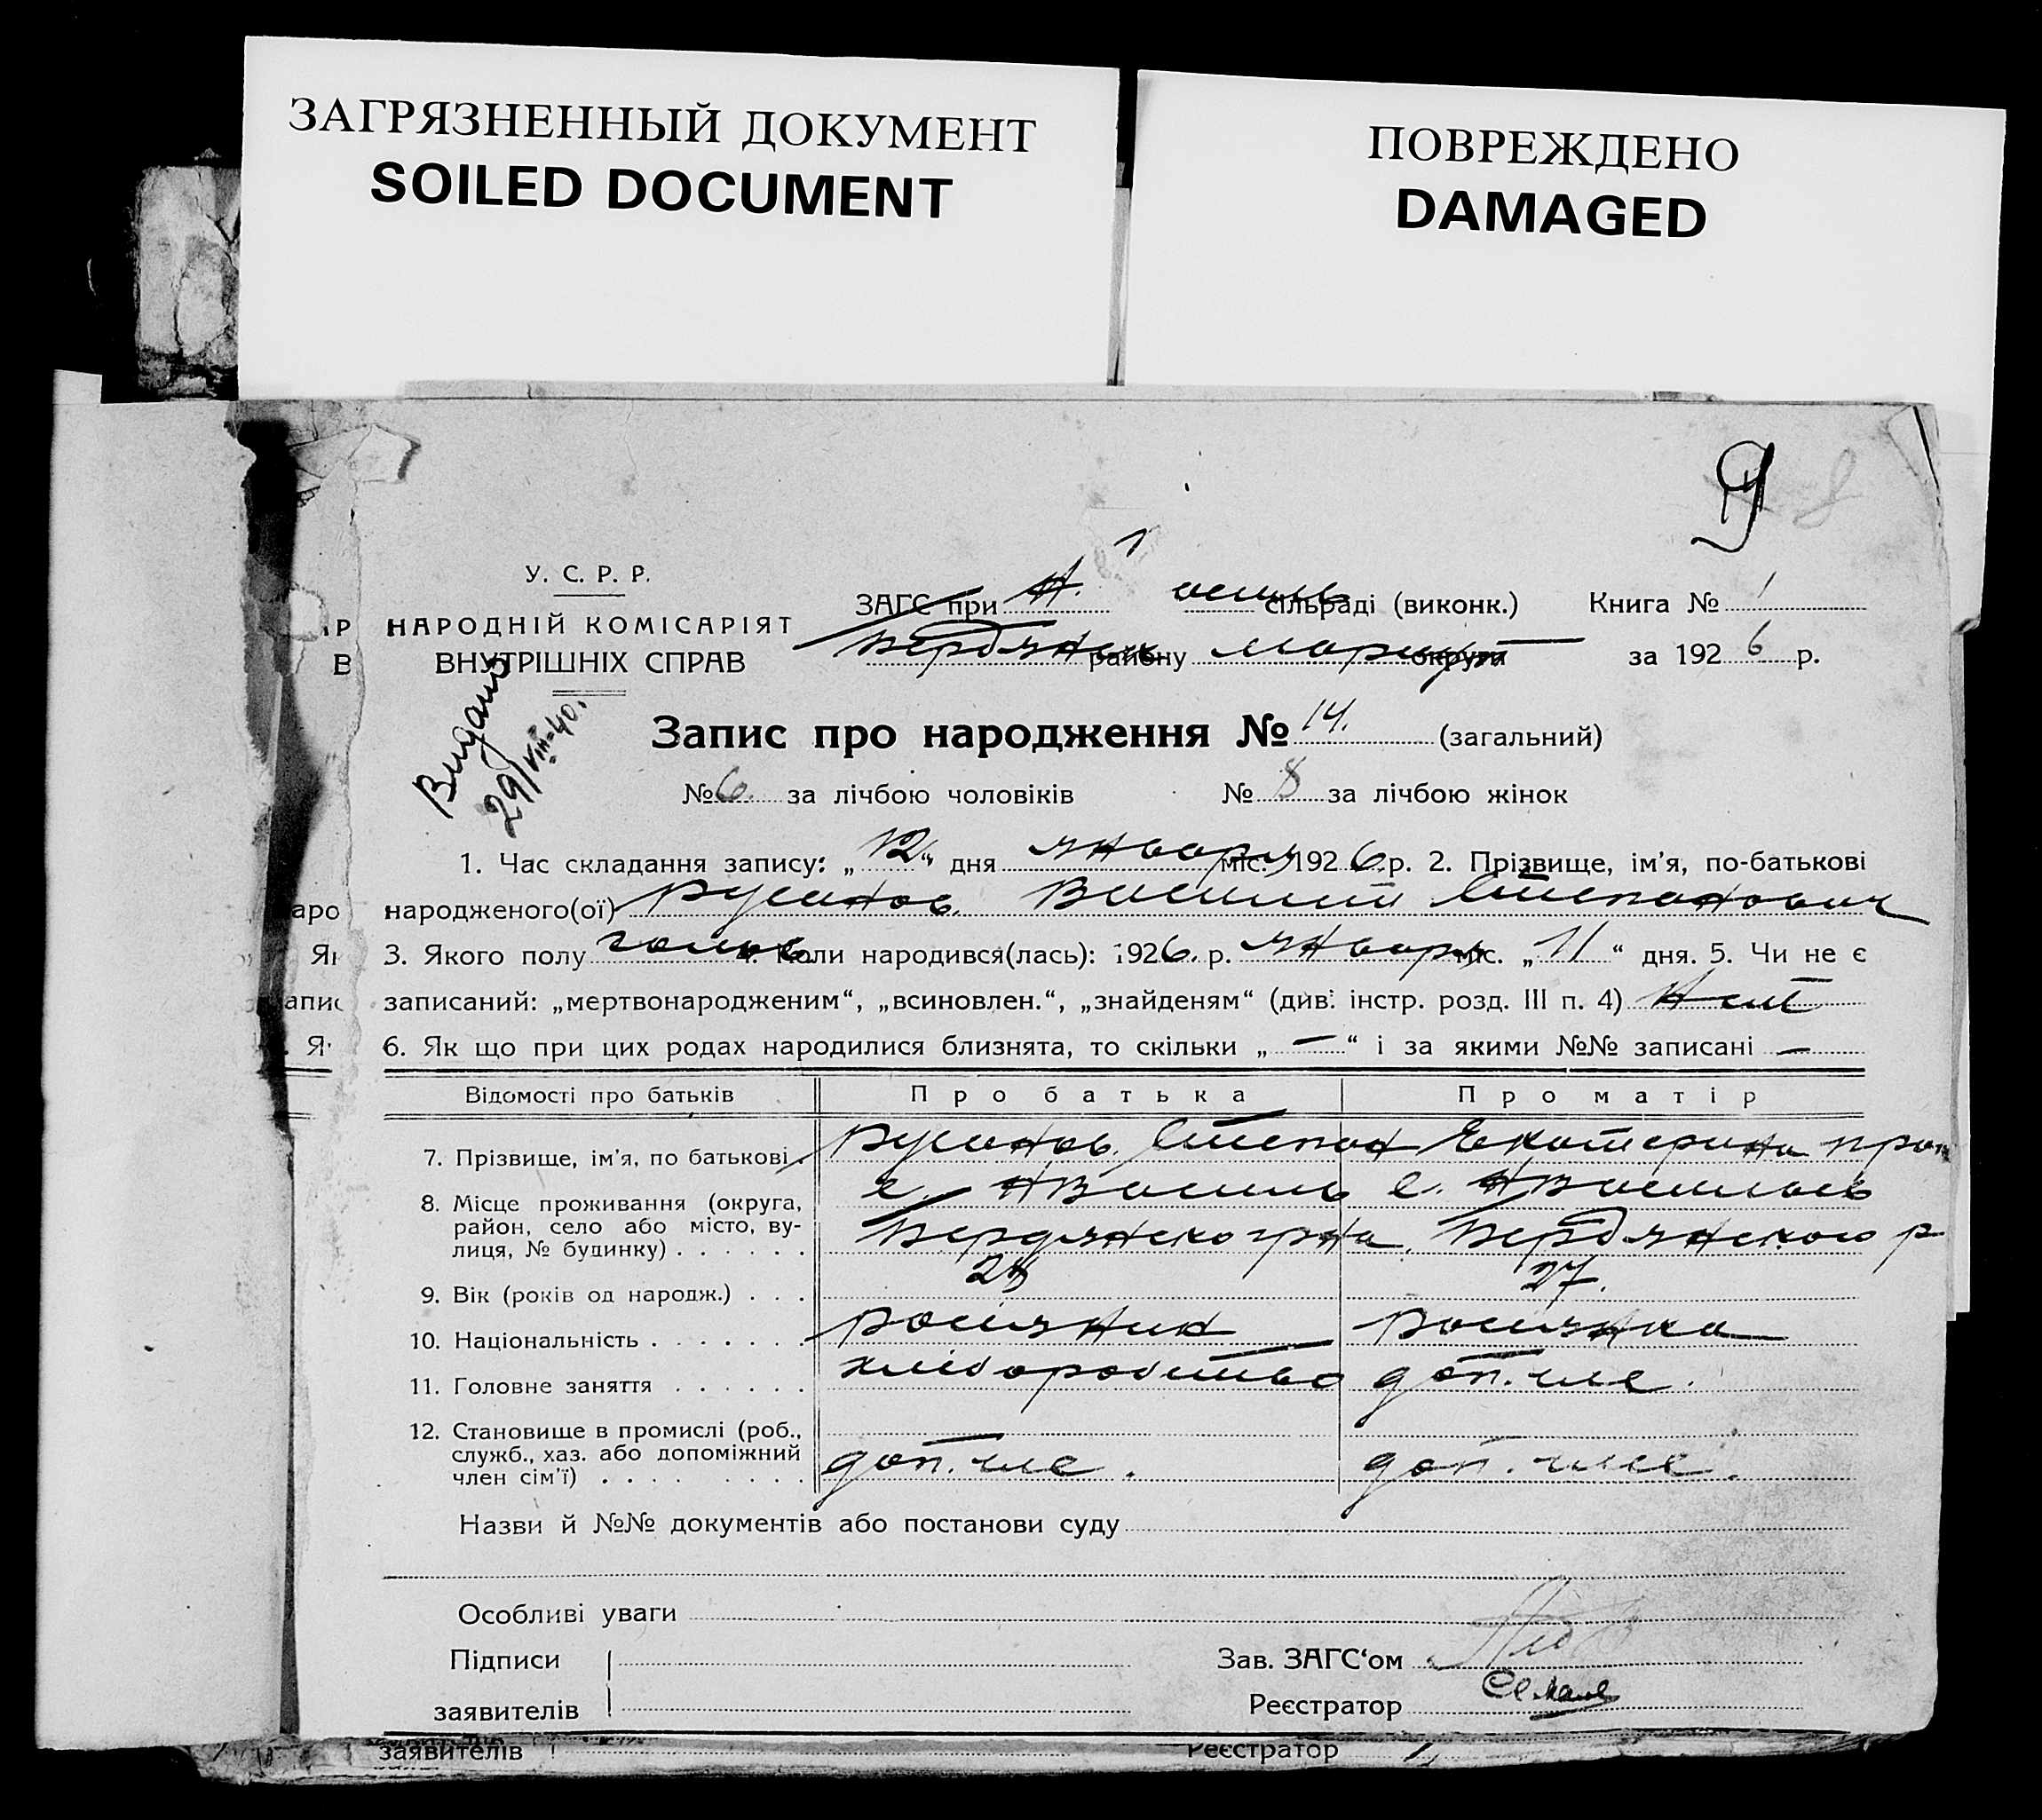 ЗАГРЯЗНЕННЫЙ ДОКУМЕНТ
SOILED DOCUMENT
ПОВРЕЖДЕНО
DAMAGED
9
8
У. С. Р. Р.
НАРОДНІЙ КОМІСАРІЯТ
ВНУТРІШНІХ СПРАВ
ЗАГС при Н. сільраді (виконк.) Книга № 1
Бердянск району Мариуп округи за 1926 р.
Видано
29/VIII-40.
Запис про народження № 14. (загальний)
№ 6. за лічбою чоловіків № 8 за лічбою жінок
1. Час складання запису: „12“ дня января міс. 1926 р. 2. Прізвище, ім'я, по-батькові
народженого(ої) Русанов Василий Степанович
3. Якого полу голов. 4. Коли народився(лась): 1926. р. января міс. „11“ дня. 5. Чи не є
записаний: „мертвонародженим“, „всиновлен.“, „знайденям“ (див. інстр. розд. III п. 4) Нет
6. Як що при цих родах народилися близнята, то скільки „—“ і за якими №№ записані —
Відомості про батьків Про батька Про матір
7. Прізвище, ім'я, по батькові. Русанов. Степан Екатерина
8. Місце проживання (округа, район, село або місто, вулиця, № будинку) с. НВасиль Бердянского рна с. НВасильев Бердянского р
9. Вік (років од народж.) 28 27.
10. Національність росіянин росіянка
11. Головне заняття хліборобство доп. чле.
12. Становище в промислі (роб., служб., хаз. або допоміжний член сім'ї) доп. чле. доп. чле.
Назви й №№ документів або постанови суду
Особливі уваги
Підписи Зав. ЗАГС'ом
заявителів Реєстратор
заявителів Реєстратор